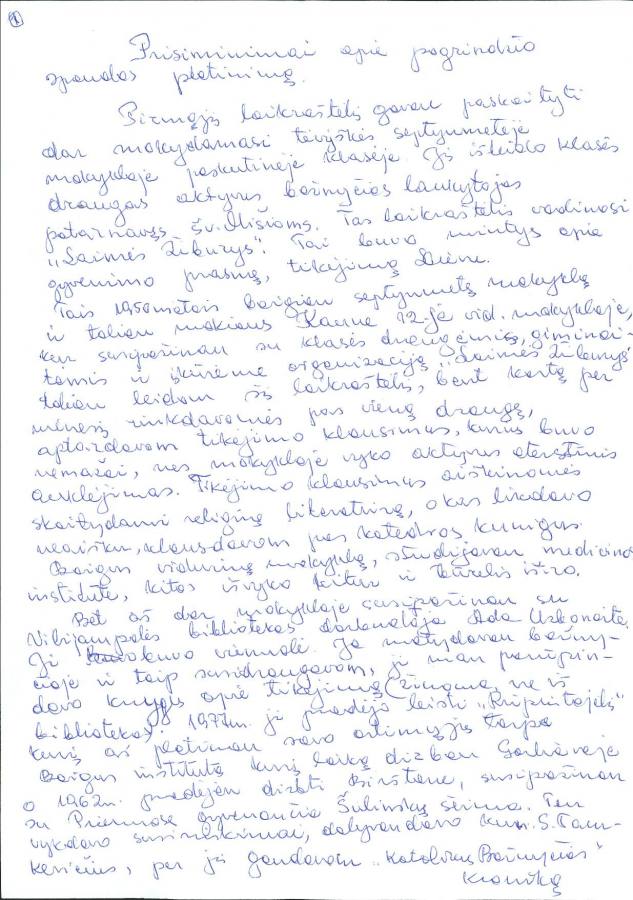 1
Prisiminimai apie pogrindžio
spaudos platinimą.
Pirmąjį laikraštėlį gavau paskaityti
dar mokydamasi tėviškės septynmetėje
mokykloje paskutinėje klasėje. Jį išleido klasės
draugas aktyvus bažnyčios lankytojas
patarnavęs Šv. Mišioms. Tas laikraštėlis vadinosi
„Laimės Žiburys". Tai buvo mintys apie
gyvenimo prasmę, tikėjimą Dievu.
Tais 1950 metais baigiau septynmetę mokyklą
ir toliau mokiaus Kaune 12-je vid. mokykloje,
kur susipažinau su klasės draugėmis, giminai-
tėmis ir įkūrėme organizaciją „Laimės Žiburys"
toliau leidom šį laikraštėlį, bent kartą per
mėnesį rinkdavomės pas vieną draugę,
aptardavom tikėjimo klausimus, kurių buvo
nemažai, nes mokykloje vyko aktyvus ateistinis
auklėjimas. Tikėjimo klausimus aiškinomės
skaitydami religinę literatūrą, o kas likdavo
neaišku, klausdavom pas katedros kunigus.
Baigus vidurinę mokyklą, studijavau medicinos
institute, kitos išvyko kitur ir būrelis iširo.
Bet aš dar mokykloje susipažinau su
Vilijampolės bibliotekos darbuotoja Ada Urbonaite.
Ji buvo vienuolė. Ją matydavau bažny-
čioje ir taip susidraugavom, ji man parūpin-
davo knygų apie tikėjimą (žinoma, ne iš
bibliotekos). 1977m. ji pradėjo leisti „Rūpintojėlį"
kurį aš platinau savo artimųjų tarpe
Baigus institutą kurį laiką dirbau Garliavoje
o 1962m. pradėjau dirbti Birštone, susipažinau
su Prienuose gyvenančia Šulinskų šeima. Ten
vykdavo susirinkimai, dalyvaudavo kun. S. Tam-
kevičius, per jį gaudavom „Katalikų Bažnyčios"
kroniką